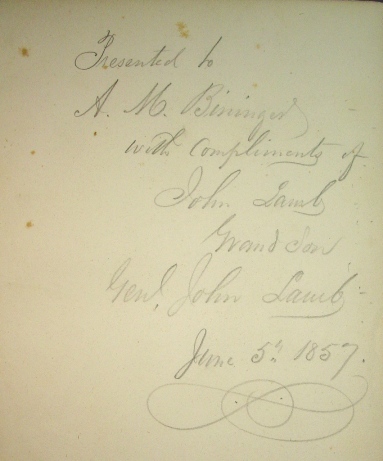 Presented to
A. M. Bininger
with Compliments of
John Lamb
Grand Son
Genl, John Lamb -
June 5th 1857.